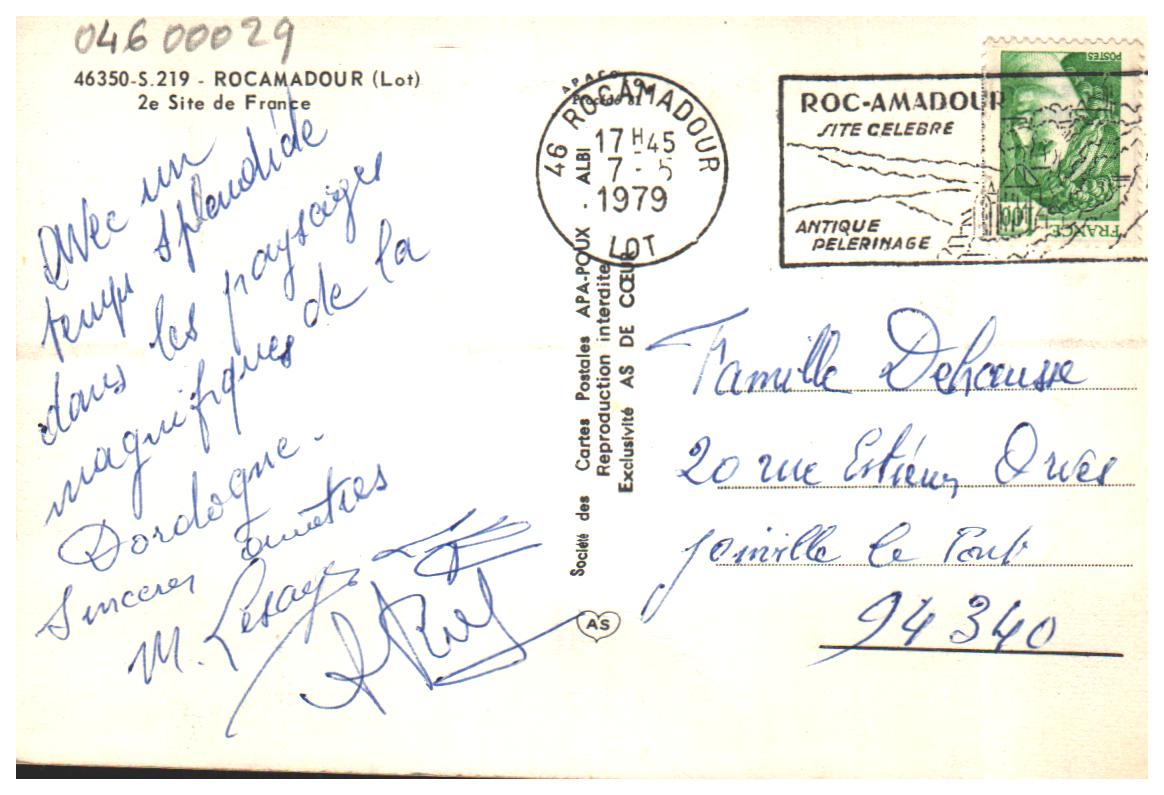 04600029
46350-S.219 - ROCAMADOUR (Lot)
2e Site de France
Avec un
temps splendide
dans les paysages
magnifiques de la
Dordogne.
Sinceres amitiés
M. Lesage
APA-POUX . ALBI
Société des Cartes Postales
Reproduction interdite
Exclusivité AS DE CŒUR
AS
46 ROCAMADOUR
17 H 45
7 - 5
1979
LOT
ROC-AMADOUR
SITE CELEBRE
ANTIQUE
PELERINAGE
POSTES
1,00
FRANCE
Famille Dehausse
20 rue Estienne Orves
Joinville le Pont
94340